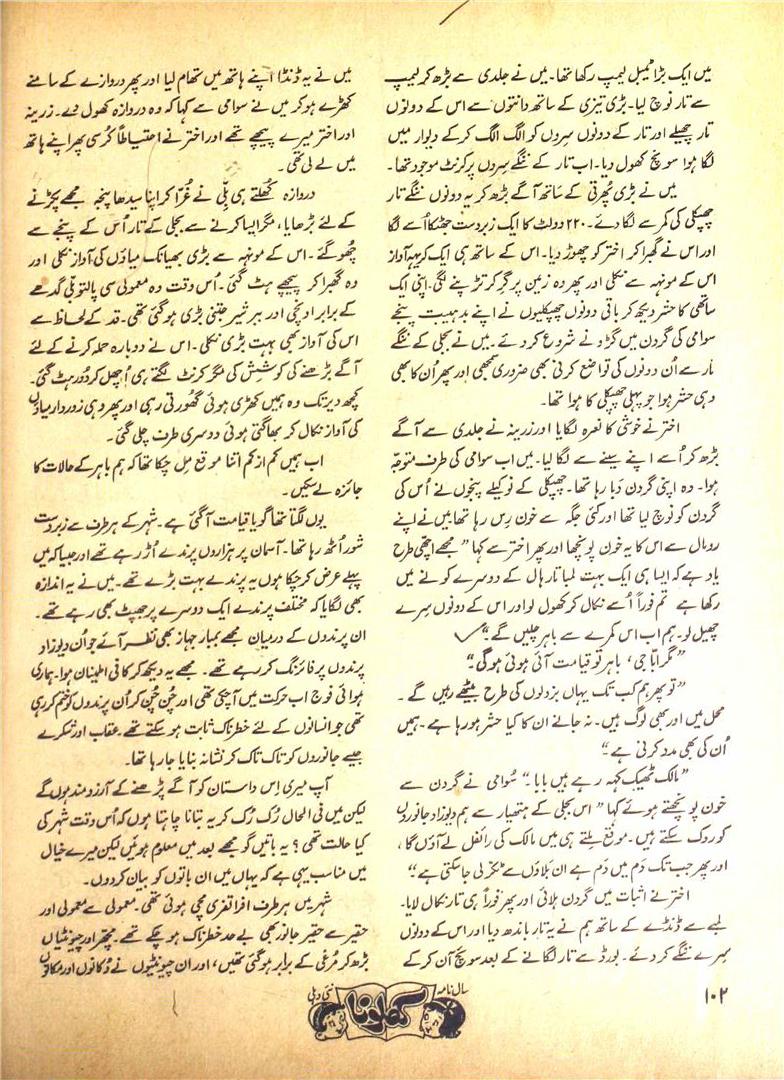 میں ایک بڑا ٹیبل لیمپ رکھا تھا۔ میں نے جلدی سے بڑھ کر لیمپ
سے تار نوچ لیا۔ بڑی تیزی کے ساتھ دانتوں سے اس کے دونوں
تار چھیلے اور تار کے دونوں سروں کو الگ الگ کر کے دیوار میں
لگا ہوا سوئچ کھول دیا۔ اب تار کے ننگے سروں پر کرنٹ موجود تھا۔
میں نے بڑی پُھرتی کے ساتھ آگے بڑھ کر یہ دونوں ننگے تار
چھپکلی کی کمر سے لگا دئے۔ ۲۲۰ وولٹ کا ایک زبردست جھٹکا اُسے لگا
اور اس نے گھبرا کر اختر کو چھوڑ دیا۔ اس کے ساتھ ہی ایک کریہہ آواز
اس کے مونہہ سے نکلی اور پھر وہ زمین پر گِر کر تڑپنے لگی۔ اپنی ایک
ساتھی کا حشر دیکھ کر باقی دونوں چھپکلیوں نے اپنے بدہیبت پنجے
سوامی کی گردن میں گڑونے شروع کر دئے۔ میں نے بجلی کے ننگے
تار سے اُن دونوں کی تواضع کرنی بھی ضروری سمجھی اور پھر اُن کا بھی
وہی حشر ہوا جو پہلی چھپکلی کا ہوا تھا۔
اختر نے خوشی کا نعرہ لگایا اور زرینہ نے جلدی سے آگے
بڑھ کر اُسے اپنے سینے سے لگا لیا۔ میں اب سوامی کی طرف متوجہ
ہوا۔ وہ اپنی گردن دبا رہا تھا۔ چھپکلی کے نوکیلے پنجوں نے اُس کی
گردن کو نوچ لیا تھا اور کئی جگہ سے خون رِس رہا تھا میں نے اپنے
رومال سے اس کا یہ خون پونچھا اور پھر اختر سے کہا "مجھے اچھی طرح
یاد ہے کہ ایسا ہی ایک بہت لمبا تار ہال کے دوسرے کونے میں
رکھا ہے تم فوراً اُسے نکال کر کھول لو اور اس کے دونوں سِرے
چھیل لو۔ ہم اب اس کمرے سے باہر چلیں گے۔"
"مگر ابّا جی، باہر تو قیامت آئی ہوئی ہوگی۔"
"تو پھر ہم کب تک یہاں بزدلوں کی طرح بیٹھے رہیں گے۔
محل میں اور بھی لوگ ہیں۔ نہ جانے ان کا کیا حشر ہو رہا ہے۔ ہمیں
اُن کی بھی مدد کرنی ہے۔"
"مالک ٹھیک کہہ رہے ہیں بابا۔" سُوامی نے گردن سے
خون پونچھتے ہوئے کہا "اس بجلی کے ہتھیار سے ہم دیوزاد جانوروں
کو روک سکتے ہیں۔ موقع ملتے ہی میں مالک کی رائفل لے آؤں گا،
اور پھر جب تک دَم میں دَم ہے ان بلاؤں سے ٹکر لی جا سکتی ہے۔"
اختر نے اثبات میں گردن ہلائی اور پھر فوراً ہی تار نکال لایا۔
لمبے سے ڈنڈے کے ساتھ ہم نے یہ تار باندھ دیا اور اس کے دونوں
سِرے ننگے کر دئے۔ بورڈ سے تار لگانے کے بعد سوئچ آن کر کے
میں نے یہ ڈنڈا اپنے ہاتھ میں تھام لیا اور پھر دروازے کے سامنے
کھڑے ہو کر میں نے سوامی سے کہا کہ وہ دروازہ کھول دے۔ زرینہ
اور اختر میرے پیچھے تھے اور اختر نے احتیاطاً کُرسی پھر اپنے ہاتھ
میں لے لی تھی۔
دروازہ کُھلتے ہی بِلّی نے غُرّا کر اپنا سیدھا پنجہ مجھے پکڑنے
کے لئے بڑھایا، مگر ایسا کرنے سے بجلی کے تار اُس کے پنجے سے
چُھو گئے۔ اس کے مونہہ سے بڑی بھیانک میاؤں کی آواز نکلی اور
وہ گھبرا کر پیچھے ہٹ گئی۔ اُس وقت وہ معمولی سی پالتو بلّی گدھے
کے برابر اونچی اور ببر شیر جتنی بڑی ہوگئی تھی۔ قد کے لحاظ سے
اس کی آواز بھی بہت بڑی نکلی۔ اس نے دوبارہ حملہ کرنے کے لئے
آگے بڑھنے کی کوشش کی مگر کرنٹ لگتے ہی اُچھل کر دُور ہٹ گئی۔
کچھ دیر تک وہ ہمیں کھڑی ہوئی گھورتی رہی اور پھر وہی زوردار میاؤں
کی آواز نکال کر بھاگتی ہوئی دوسری طرف چلی گئی۔
اب ہمیں کم از کم اتنا موقع مِل چکا تھا کہ ہم باہر کے حالات کا
جائزہ لے سکیں۔
یوں لگتا تھا گویا قیامت آ گئی ہے۔ شہر کے ہر طرف سے زبردست
شور اُٹھ رہا تھا۔ آسمان پر ہزاروں پرندے اُڑ رہے تھے اور جیسا کہ میں
پہلے عرض کر چکا ہوں یہ پرندے بہت بڑے تھے۔ میں نے یہ اندازہ
بھی لگایا کہ مختلف پرندے ایک دوسرے پر جھپٹ بھی رہے تھے۔
ان پرندوں کے درمیان مجھے بمبار جہاز بھی نظر آئے جو اُن دیوزاد
پرندوں پر فائرنگ کر رہے تھے۔ مجھے یہ دیکھ کر کافی اطمینان ہوا۔ ہماری
ہوائی فوج اب حرکت میں آ چکی تھی اور چُن چُن کر اُن پرندوں کو ختم کر رہی
تھی جو انسانوں کے لئے خطرناک ثابت ہو سکتے تھے۔ عقاب اور شکرے
جیسے جانوروں کو تاک تاک کر نشانہ بنایا جا رہا تھا۔
آپ میری اِس داستان کو آگے پڑھنے کے آرزومند ہوں گے
لیکن میں فی الحال رُک رُک کر یہ بتانا چاہتا ہوں کہ اُس وقت شہر کی
کیا حالت تھی؟ یہ باتیں گو مجھے بعد میں معلوم ہوئیں لیکن میرے خیال
میں مناسب یہی ہے کہ یہاں میں ان باتوں کو بیان کر دوں۔
شہر میں ہر طرف افراتفری مچی ہوئی تھی۔ معمولی سے معمولی اور
حقیر سے حقیر جانور بھی بے حد خطرناک ہو چکے تھے۔ مچھر اور چیونٹیاں
بڑھ کر مُرغی کے برابر ہوگئی تھیں، اور ان چیونٹیوں نے دُکانوں اور مکانوں
سال نامہ کھلونا نئی دہلی
۱۰۲